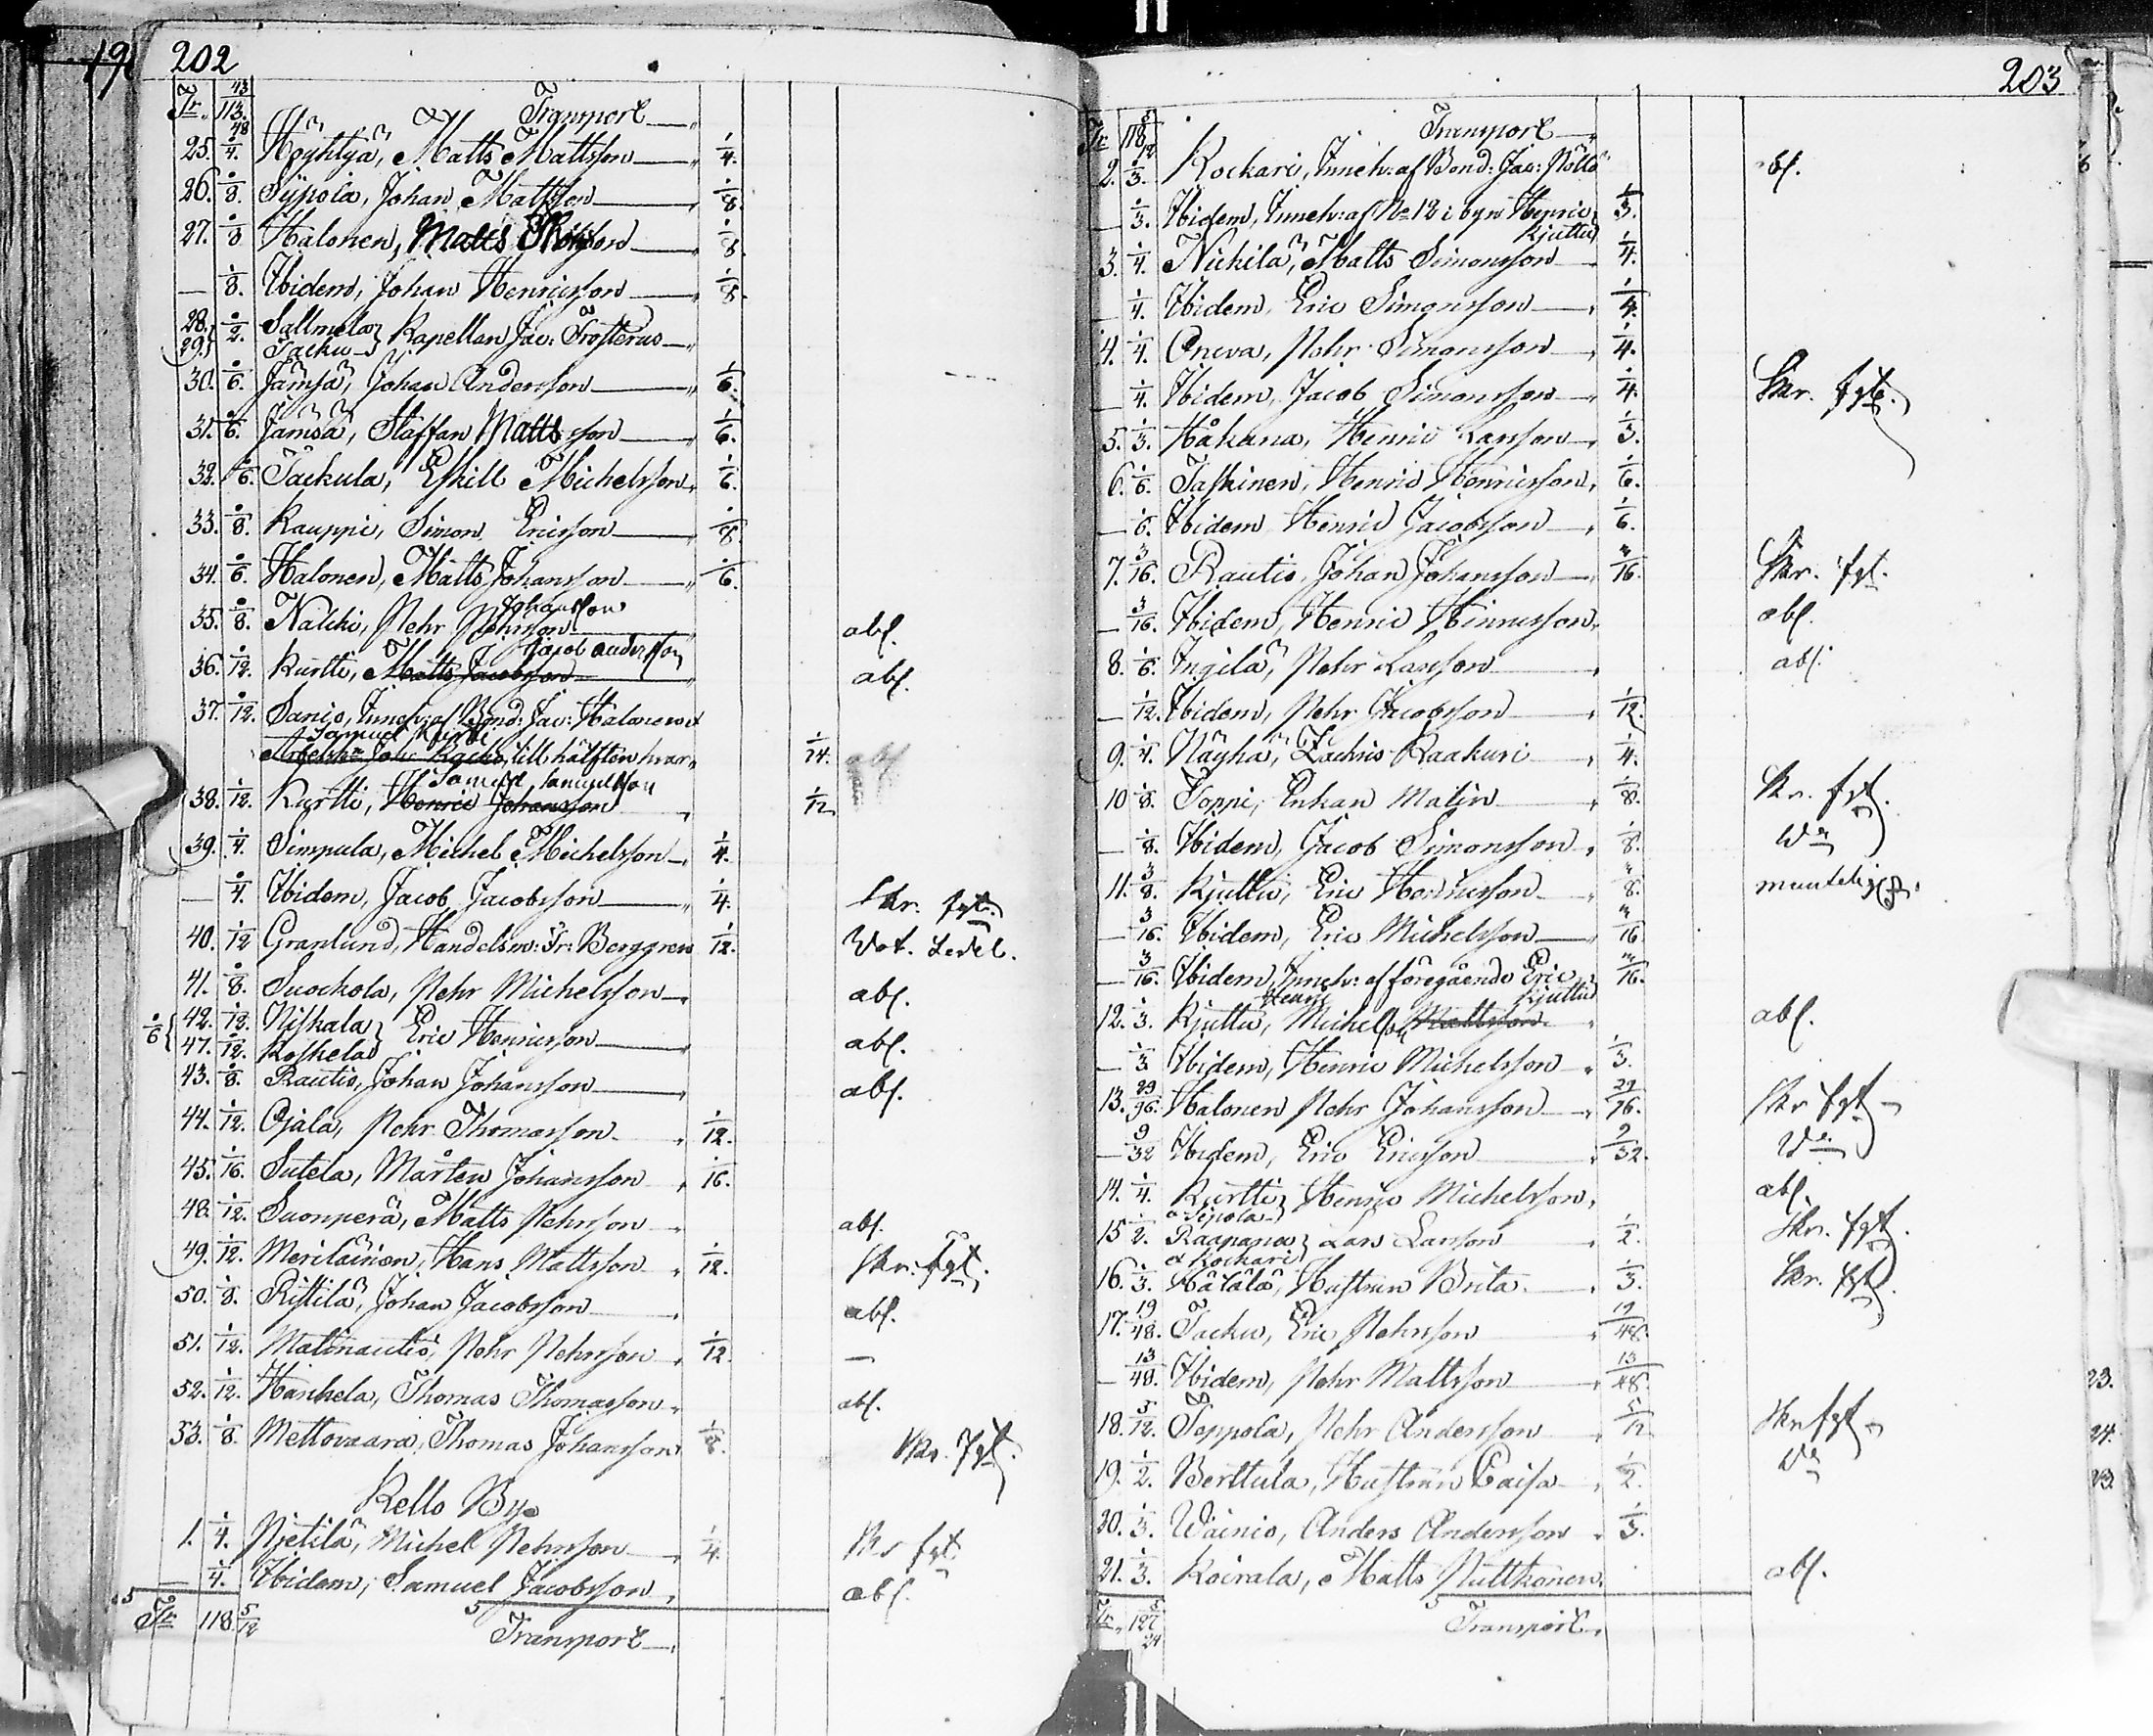 202
Tr. 113. 43/48 Transport
25. 1/4. Höyhtyä, Matts Mattsson 1/4.
26. 1/8. Sijpola, Johan Mattsson 1/8.
27. 1/8 Halonen, Matts 1/8.
— 1/8. Ibidem, Johan Henricsson 1/8.
28. 29. 1/2. Sallmela Jacku } Kapellan Jac: Frosterus
30. 1/6. Jämsä, Johan Andersson 1/6.
31. 1/6. Jämsä, Staffan Mattsson 1/6.
32. 1/6. Jackula, Eskill Michelsson 1/6.
33. 1/8. Kauppi, Simon Ericsson 1/8
34. 1/6. Halonen, Matts Johansson 1/6.
Johansson
35. 1/8. Nälcki, Pehr Pehrsson abs.
Jacob andersson
36. 1/12. Kurtti, Matts Jacobsson abs.
37. 1/12. Sanio, Inneh: af Bond: Jac: Halonen et
Samuel Kurtti
till hälften hvar 1/24. abs.
Samuel Samuelsson
38. 1/12. Kurtti, Henric Johansson 1/12
39. 1/4. Simpula, Michel Michelsson 1/4.
— 1/4. Ibidem, Jacob Jacobsson 1/4. Skr. fgt.
40. 1/12 Granlund, Handelsm: Fr: Berggren 1/12. Vot. Sedel.
41. 1/8. Suockola, Pehr Michelsson abs.
1/6 { 42. 1/12. Niskala
47. 1/12. Koskela } Eric Henricsson abs.
43. 1/8. Rautio, Johan Johansson abs.
44. 1/12. Ojala, Pehr Thomasson 1/12.
45. 1/16. Sutela, Mårten Johansson 1/16.
48. 1/12. Suonperä, Matts Pehrsson abs.
49. 1/12. Meriläinen, Hans Mattsson 1/12. Skr. fgt.
50. 1/8. Ristilä, Johan Jacobsson abs.
51. 1/12. Matinautio, Pehr Pehrsson 1/12. —
52. 1/12. Hankela, Thomas Thomasson abs.
53. 1/8. Mettovaara, Thomas Johansson 1/8. Skr. fgt.
Kello By
1. 1/4. Pietilä, Michel Pehrsson 1/4. Skr fgt.
— 1/4. Ibidem, Samuel Jacobsson abs.
Tr 118 5/12 Transport
203
Tr 118 5/12 Transport
2. 1/3. Kockari, Inneh: af Bond: Jac: Pöllö abs.
— 1/3. Ibidem, Inneh: af No 12 i byn Henric Kjuttu 1/3.
3. 1/4. Nickilä, Matts Simonsson 1/4.
— 1/4. Ibidem, Eric Simonsson 1/4.
4. 1/4. Oneva, Pehr Simonsson 1/4.
— 1/4. Ibidem, Jacob Simonsson 1/4. Skr. fgt.
5. 1/3. Håkana, Henric Larsson 1/3.
6. 1/6. Taskinen, Henric Henricsson 1/6.
— 1/6. Ibidem Henric Jacobsson 1/6.
7. 3/16. Rautio, Johan Johansson 3/16. Skr. fgt.
— 3/16. Ibidem, Henric Hinricsson abs.
8. 1/6. Ingilä, Pehr Larsson abs.
— 1/12. Ibidem, Pehr Jacobsson 1/12.
9. 1/4. Näyhä, Zachris Raakuri 1/4.
10 1/8. Toppi, Enkan Malin 1/8. Skr. fgt.
— 1/8. Ibidem, Jacob Simonsson 1/8. Do
11. 3/8. Kjuttu, Eric Henricsson 3/8.
— 3/16. Ibidem, Eric Michelsson 3/16
— 3/16. Ibidem, Inneh: af föregående Eric Kjuttu 3/16.
Henric
12. 1/3. Kjuttu, Michelsson Mattsson abs.
— 1/3 Ibidem, Henric Michelsson 1/3.
13. 29/96. Halonen Pehr Johansson 29/96. Skr fgt
— 9/32 Ibidem, Eric Ericsson 9/32. Do
14. 1/4. Kurtti Henric Michelsson abs.
a Sipola
15 1/2. Raapana } Lars Larsson 1/2. Skr. fgt.
a Kockari
16. 1/3. Hätälä, Hustrun Brita 1/3. Skr. fgt.
17. 19/48. Jacku, Eric Pehrsson 19/48.
— 13/48. Ibidem, Pehr Mattsson 13/48.
18. 5/12. Teppola, Pehr Andersson 5/12 Skr fgt
19. 1/2. Berttula, Hustrun Caisa 1/2. Do
20. 1/3. Wäinio, Anders Andersson 1/3.
21. 1/3. Koirala, Matts Kutthonen abs.
Tr 127 5/24 Transport
23.
24.